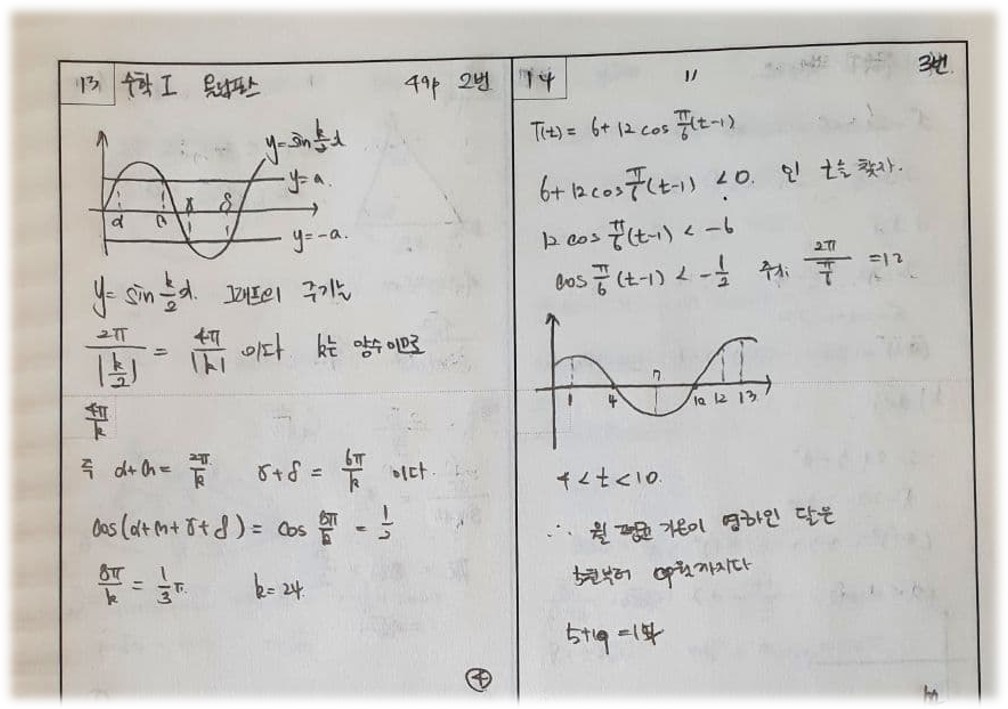 13 수학 I 올림포스 49p 2번
y = sin k/2 x
y = a.
α β γ δ
y = -a.
y = sin k/2 x. 그래프의 주기는
2π/|k/2| = 4π/|k| 이다 k는 양수이므로
4π/k
즉 α+β = 2π/k γ+δ = 6π/k 이다.
cos(α+β+γ+δ) = cos 8π/k = 1/2
8π/k = 1/3 π. k = 24.
④
14 〃 3번
T(t) = 6 + 12 cos π/6 (t-1)
6 + 12 cos π/6 (t-1) < 0. 인 t를 찾자.
12 cos π/6 (t-1) < -6
cos π/6 (t-1) < -1/2 주기: 2π/(π/6) = 12
1 4 7 10 12 13
4 < t < 10.
∴ 월 평균 기온이 영하인 달은
5월부터 9월까지다